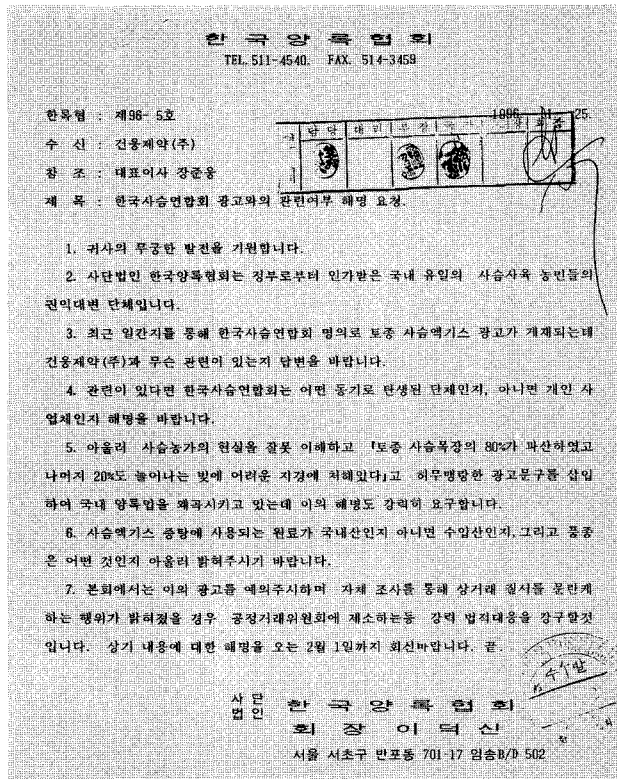 한 국 양 록 협 회
TEL. 511-4540. FAX. 514-3459
한록협 : 제96- 5호
1996. 1. 25.
수 신 : 건웅제약(주)
담 당 대 리 부 장
참 조 : 대표이사 장준웅
제 목 : 한국사슴연합회 광고와의 관련여부 해명 요청.
1. 귀사의 무궁한 발전을 기원합니다.
2. 사단법인 한국양록협회는 정부로부터 인가받은 국내 유일의 사슴사육 농민들의
권익대변 단체입니다.
3. 최근 일간지를 통해 한국사슴연합회 명의로 토종 사슴엑기스 광고가 게재되는데
건웅제약(주)과 무슨 관련이 있는지 답변을 바랍니다.
4. 관련이 있다면 한국사슴연합회는 어떤 동기로 탄생된 단체인지, 아니면 개인 사
업체인지 해명을 바랍니다.
5. 아울러 사슴농가의 현실을 잘못 이해하고 「토종 사슴목장의 80%가 파산하였고
나머지 20%도 늘어나는 빚에 어려운 지경에 처해있다」고 허무맹랑한 광고문구를 삽입
하여 국내 양록업을 왜곡시키고 있는데 이의 해명도 강력히 요구합니다.
6. 사슴엑기스 중탕에 사용되는 원료가 국내산인지 아니면 수입산인지,그리고 품종
은 어떤 것인지 아울러 밝혀주시기 바랍니다.
7. 본회에서는 이의 광고를 예의주시하며 자체 조사를 통해 상거래 질서를 문란케
하는 행위가 밝혀졌을 경우 공정거래위원회에 제소하는등 강력 법적대응을 강구할것
입니다. 상기 내용에 대한 해명을 오는 2월 1일까지 회신바랍니다. 끝.
사 단
법 인
한 국 양 록 협 회
회 장 이 덕 신
서울 서초구 반포동 701-17 임송B/D 502